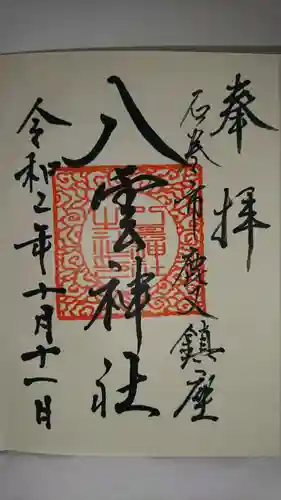 奉拝
石巻市鹿又鎮座
八雲神社
令和二年十月十一日